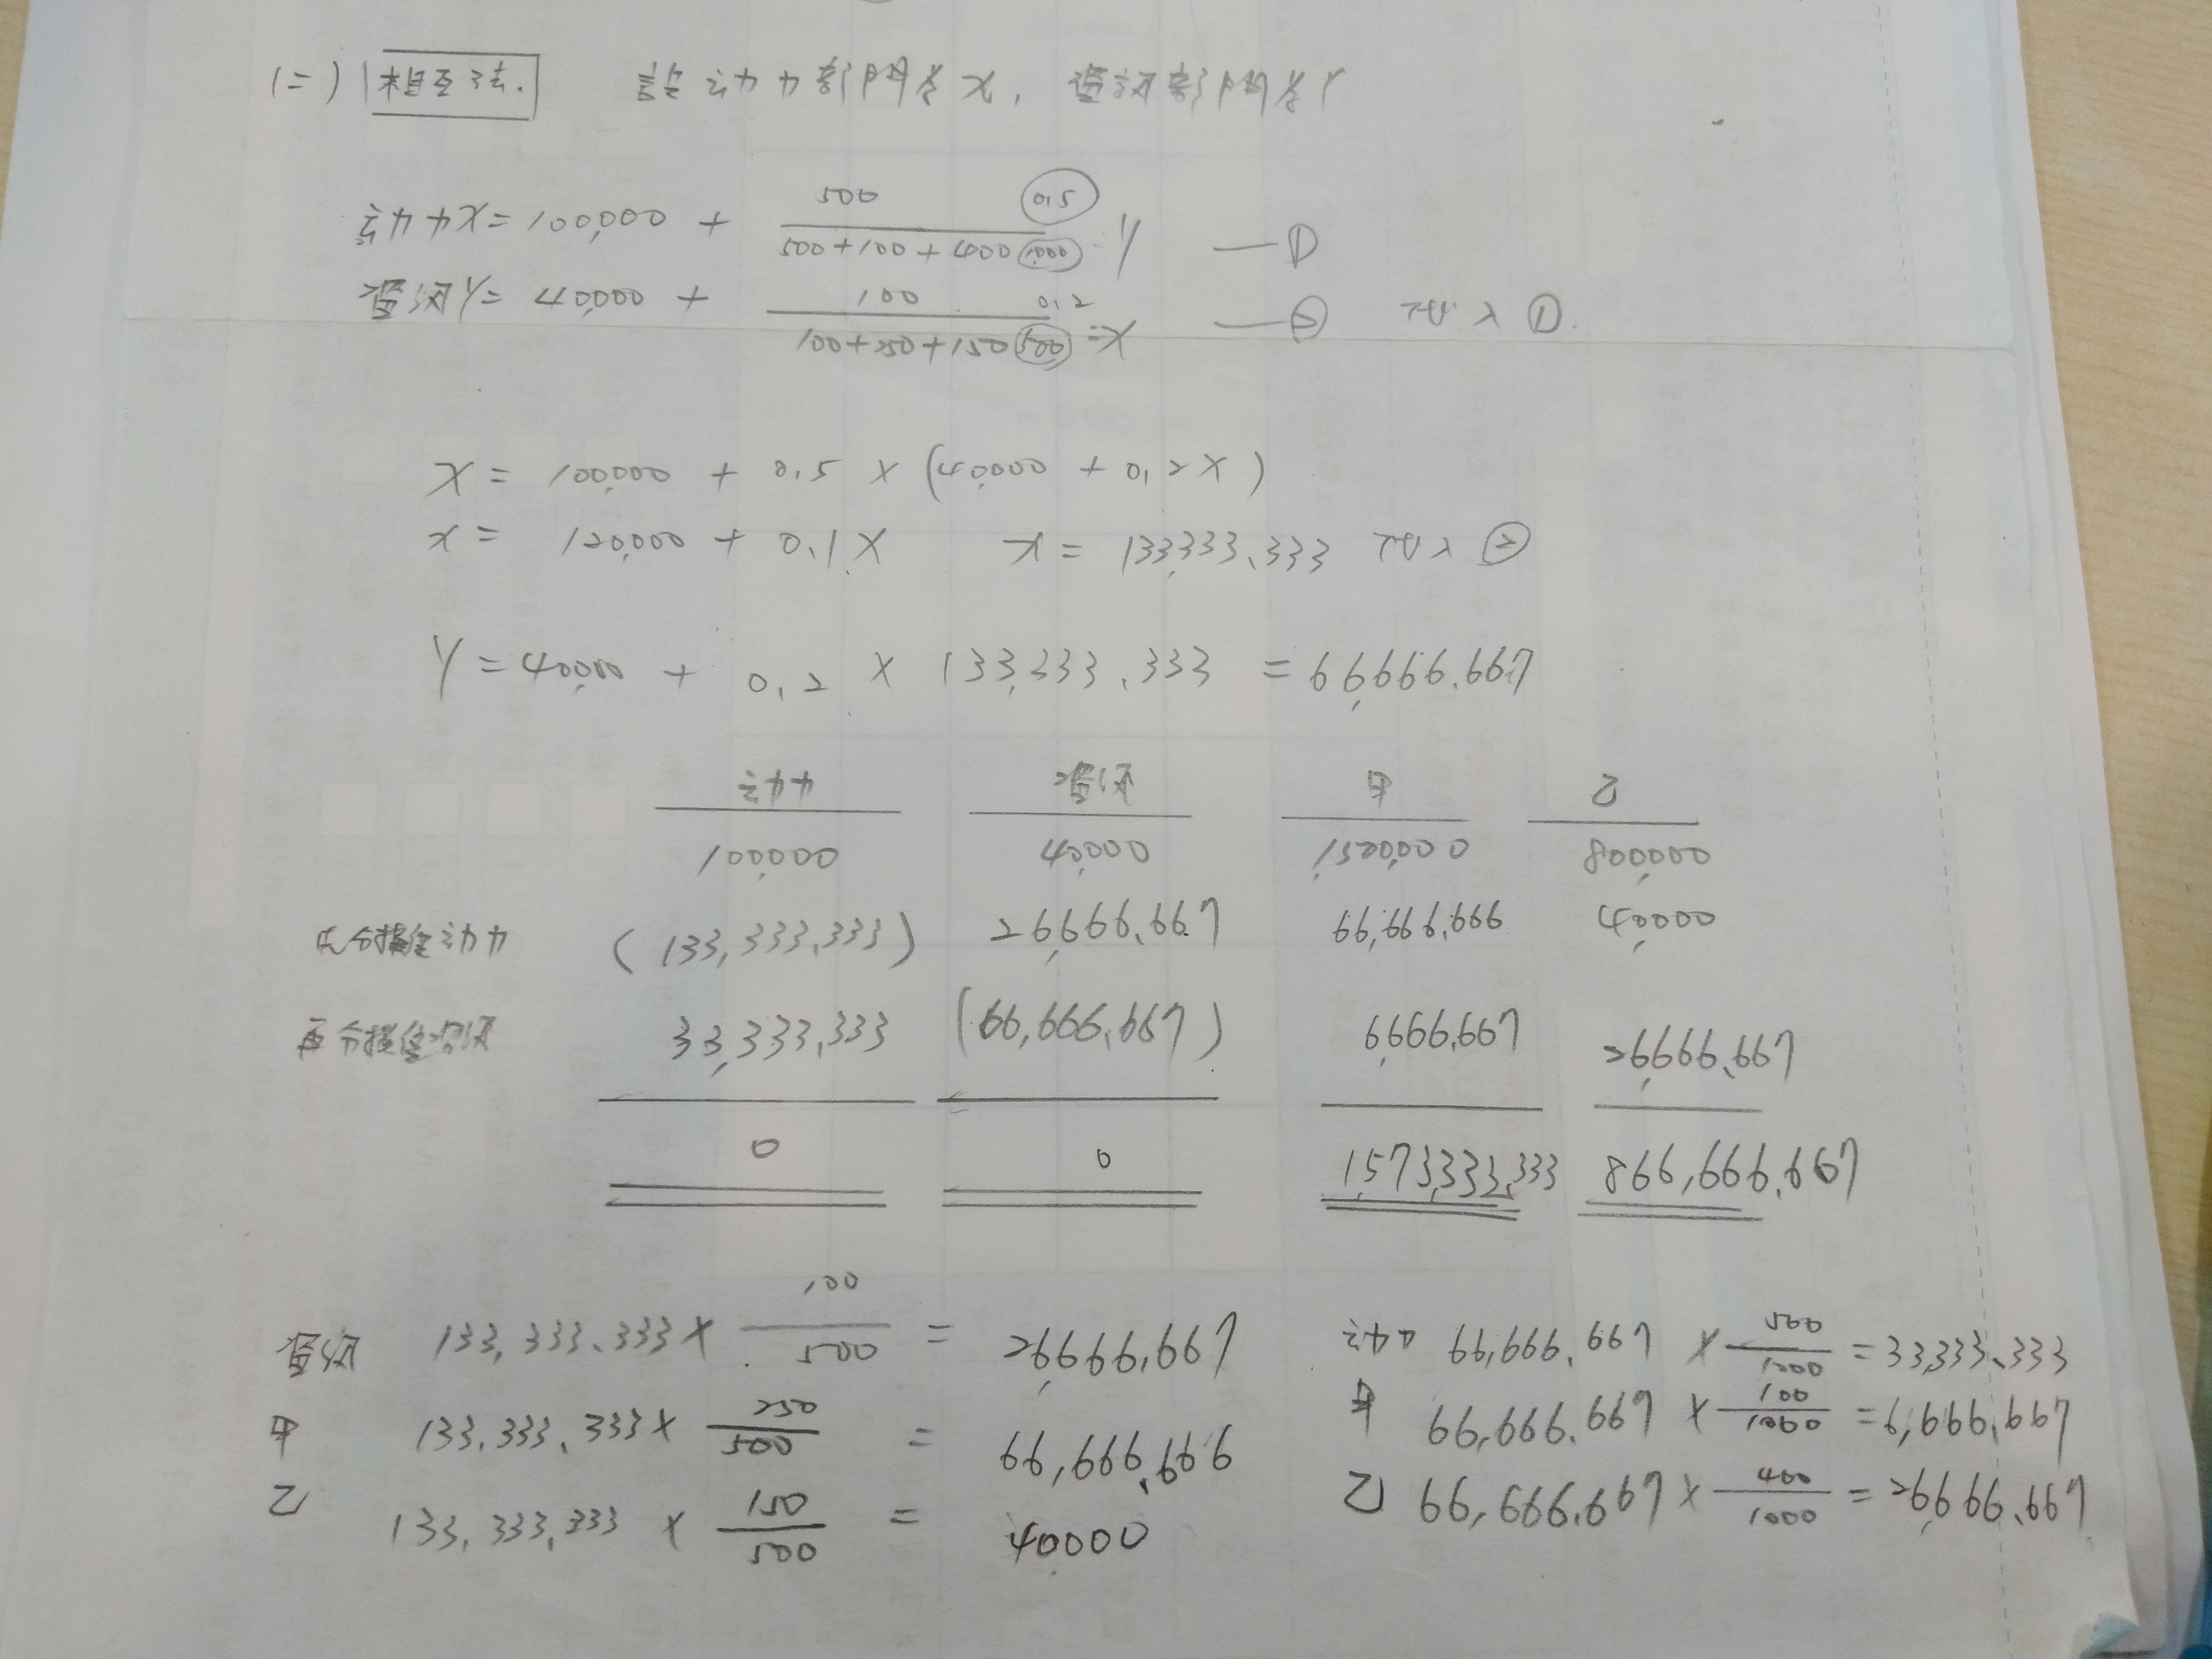 (二) 相互法. 設動力部門為X, 資訊部門為Y
500 0.5
動力X = 100,000 + 500+100+400 1000 Y — ①
100 0.2
資訊Y = 40,000 + 100+250+150 500 =X — ② 代入 ①.
X = 100,000 + 0.5 × (40,000 + 0.2X)
X = 120,000 + 0.1X X = 133,333.333 代入 ②
Y = 40,000 + 0.2 × 133,333.333 = 66,666.667
動力 資訊 甲 乙
100,000 40,000 1,500,000 800,000
動力 (133,333.333) 26,666.667 66,666.666 40,000
再分攤 33,333.333 (66,666.667) 6,666.667 26,666.667
0 0 1,573,333.333 866,666.667
資訊 133,333.333 × 100/500 = 26,666.667 動力 66,666.667 × 500/1000 = 33,333.333
甲 133,333.333 × 250/500 = 66,666.666 甲 66,666.667 × 100/1000 = 6,666.667
乙 133,333.333 × 150/500 = 40,000 乙 66,666.667 × 400/1000 = 26,666.667